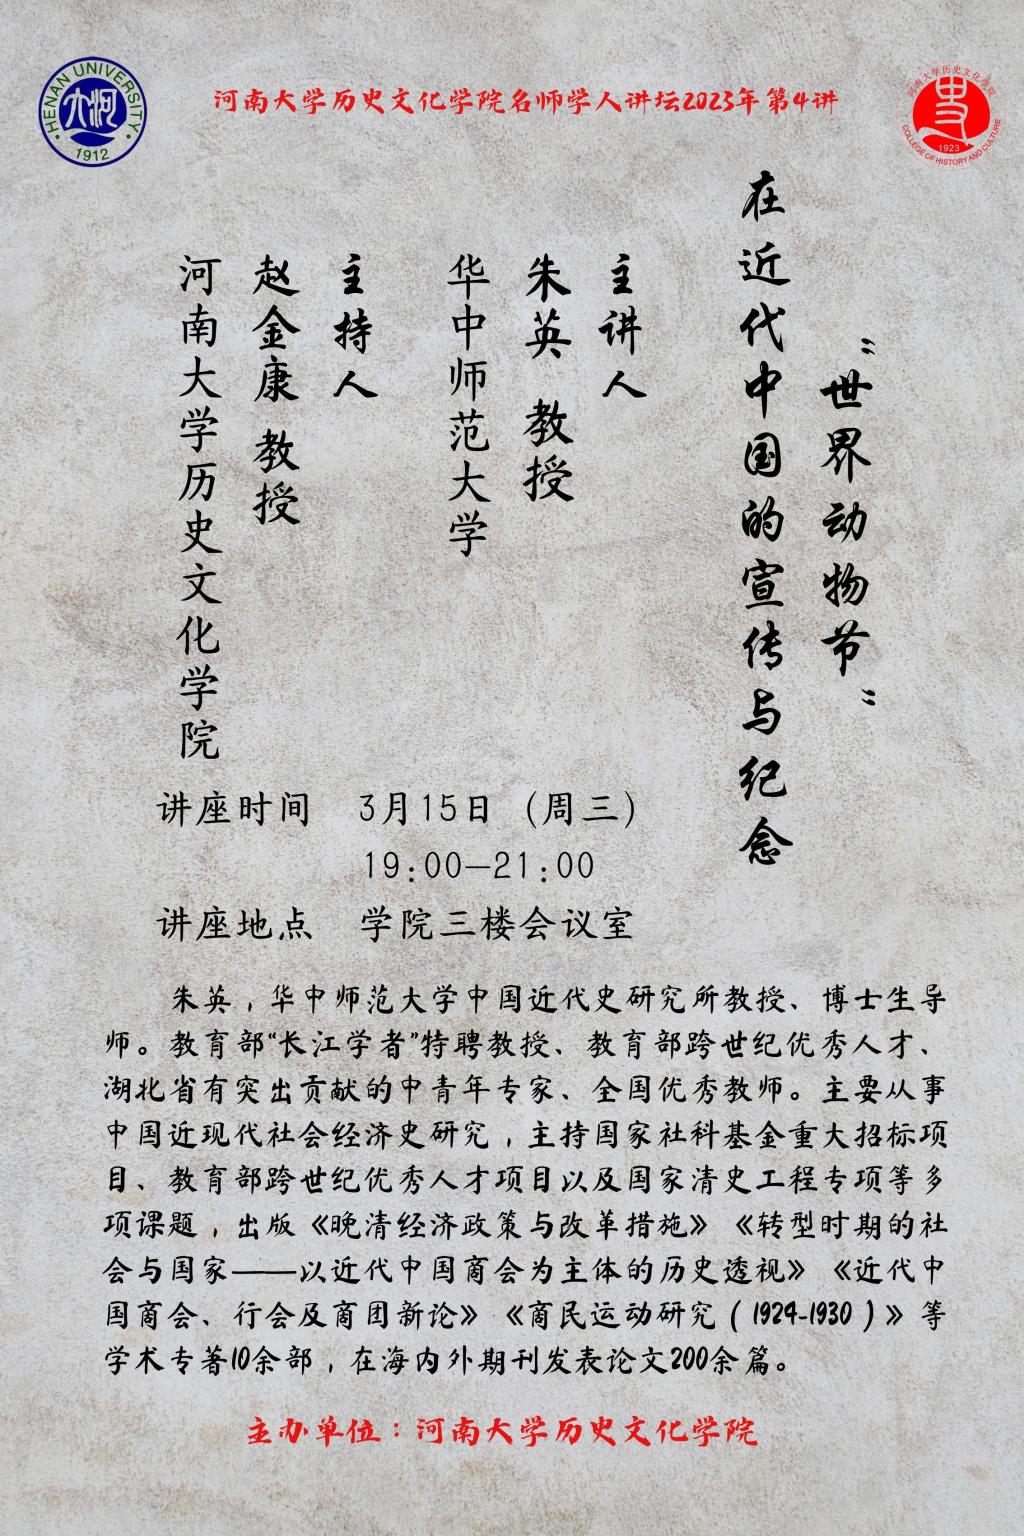 河南大学历史文化学院名师学人讲坛2023年第4讲
HENAN UNIVERSITY
大河
1912
河南大学历史文化学院
史
1923
COLLEGE OF HISTORY AND CULTURE
“世界动物节”
在近代中国的宣传与纪念
主讲人
朱英 教授
华中师范大学
主持人
赵金康 教授
河南大学历史文化学院
讲座时间 3月15日（周三）
19:00—21:00
讲座地点 学院三楼会议室
朱英，华中师范大学中国近代史研究所教授、博士生导
师。教育部“长江学者”特聘教授、教育部跨世纪优秀人才、
湖北省有突出贡献的中青年专家、全国优秀教师。主要从事
中国近现代社会经济史研究，主持国家社科基金重大招标项
目、教育部跨世纪优秀人才项目以及国家清史工程专项等多
项课题，出版《晚清经济政策与改革措施》《转型时期的社
会与国家——以近代中国商会为主体的历史透视》《近代中
国商会、行会及商团新论》《商民运动研究（1924-1930）》等
学术专著10余部，在海内外期刊发表论文200余篇。
主办单位：河南大学历史文化学院